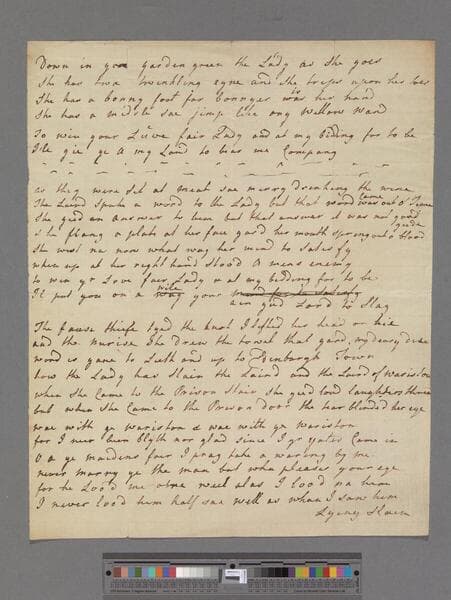 Down in yon garden green the Lady as she goes
She has twa twinkling eyne and she trips upon her toes
She has a bonny foot far bonnyer is her hand
She has a midle sae jimp like ony willow wand
To win your Luive fair Lady and at my bidding for to be
Ile gie ye a my Land to bear me Company
as they were set at meat sae merry drinking the wine
The Laird spake a word to the Lady but that word was out o Time
She gied an answer to him but that answer it was not gued
he flang a plate at her face gard her mouth sprong out o blood
She wist na now what way her mind to satisfy
when up at her right hand stood a mens enemy
to win yr Love fair Lady & at my bedding for to be
Il put you on a wile
your ain gud Lord to Slay
The fause thiefe tyed the knot I lifted his head on hie
and the nurise she drew the towel that gard my deary die
word is gane to Leith and up to Edinburgh Town
how the Lady has Slain the Laird and the Laird of wariston
when she came to the Prison Stair she gied loud laughters three
but when she came to the Prison door the tear blinded her eye
wae with ye wariston & wae with ye wariston
for I neer been blyth nor glad since I yr yates came in
O a ye maidens fair I pray take a warning by me
never marry ye the man but wha pleases your eye
for he Loo'd me weel alas I lood na him
I never lood him half sae well as whan I saw him
Lyeng Slain